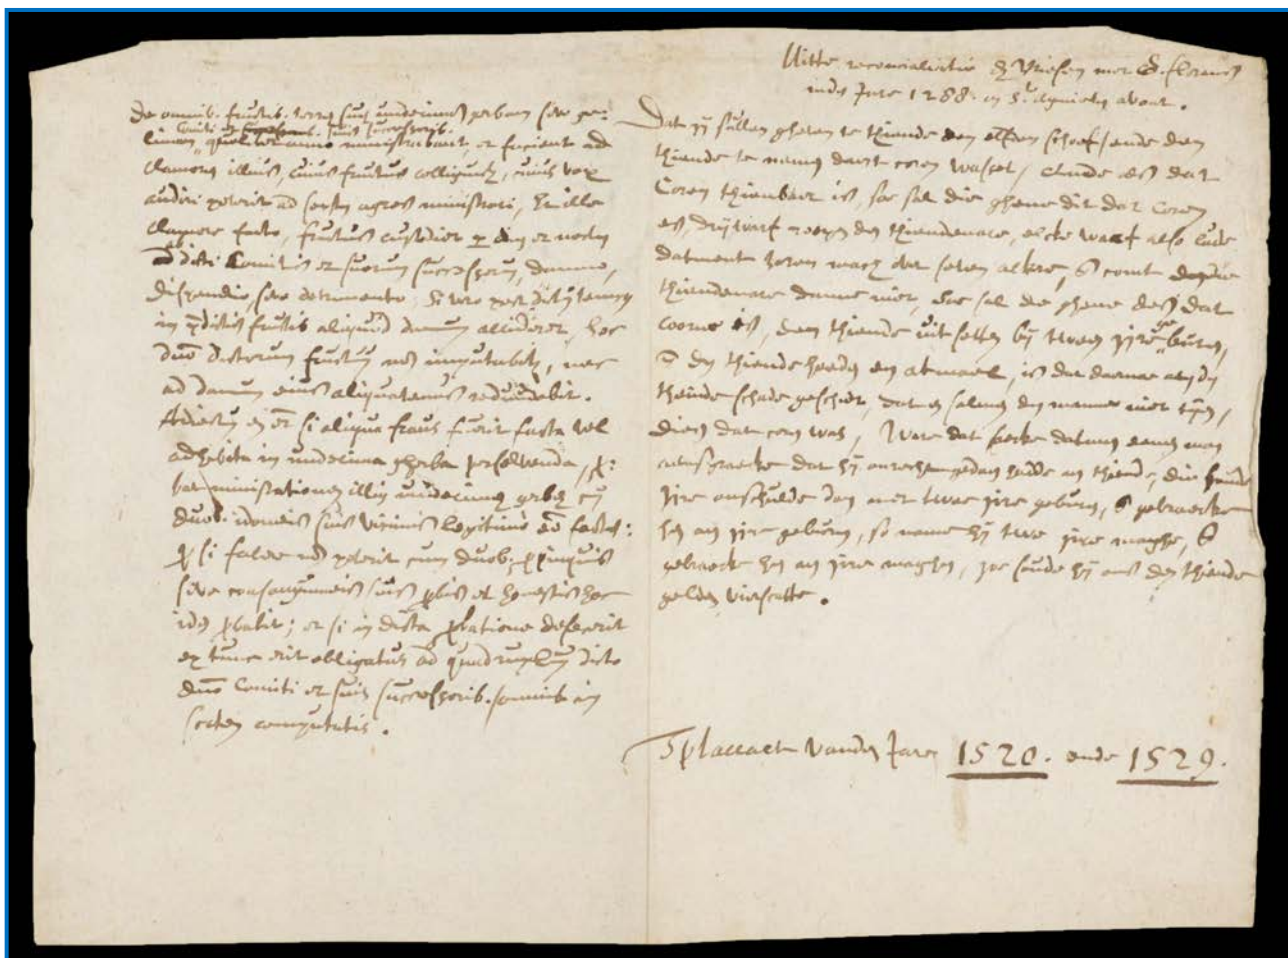 de omnib. fructib. terre sue undecimam garbam seu ge:
Comiti et suis successorib.
limam quolibet anno ministrabunt, et facient ad
clamorem illius, cuius fructus colliguntur, cuius vox
audiri poterit ad septem agros ministrari, Et ille
clamore facto, fructus custodiet per diem et noctem
ad dicti Comitis et suorum successorum, damno,
dispendio, seu detrimento. Si vero post dictum tempus
in predictis fructib. aliquid damnum acciderit, hoc
duo dictorum fructuum non imputabitur, nec
ad damnum eius aliquatenus redundabit.
Adiectum est etiam si aliqua fraus fuerit facta vel
adhibita in undecima gherba persolvenda, pro:
bat ministrationem illius undecime gerbe cum
duob. idoneis suis vicinis legitime esse factam:
Et si facere non poterit cum duob. propinquis
sive consanguineis suis probis et honestis hoc
idem probabit; et si in dicta probatione defecerit
ex tunc erit obligatus ad quadruplum dicto
duo Comiti et suis successorib. omnib. in
sortem computatis.
Uitte reconciliatie der Vriesen met G. florens
inden Jare 1288. op St. avont.
Dat zy sullen gheven te thiende den elften schoof, ende den
thiende te nemen daert coren wasset, Ende als dat
Coren thienbaer is, soe sal die ghene dit dat Coren
es, drijwerf roepen den thiendenare, elcke waerf also lude
datment horen mach over seven ackere, comt die
thiendenare danne niet, Soe sal die ghene dies dat
coorne is, den thiende uit setten bij tween zijre geburen,
den thiende hoeden een etmael, is dat daerna aen den
theinde schade geschiet, dat en salmen den manne niet tyen,
dies dat coren was, Ware dat sake datmen eenen man
aenspraecke dat hij onrecht gedaen hadde an thiende, die soude
zijre onschulde doen met twee zijre geburen, gebraecke
hem an zijre geburen, so name hij twe zijre maghe,
gebraecke hem an zijre maghen, zoe soude hij ons den thiende
gelden vierscatte.
Tplaccaet vanden Jare 1520. ende 1529.